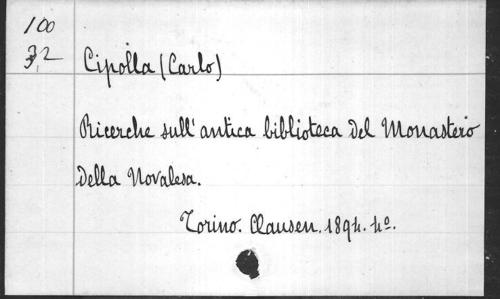 100
32 Cipolla (Carlo)
Ricerche sull' antica biblioteca del Monastero
della Novalesa.
Torino. Clausen. 1894. 4º.